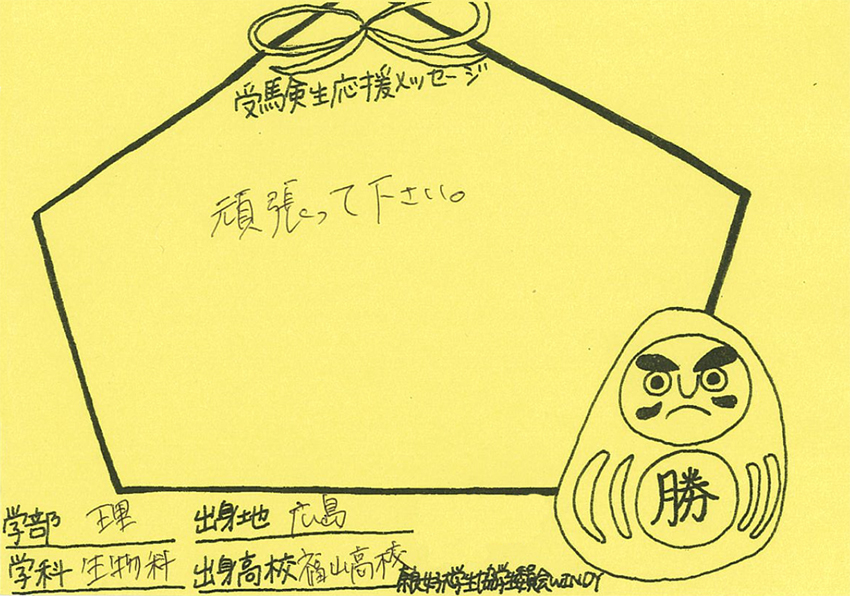 受験生応援メッセージ
頑張って下さい。
勝
学部 理 出身地 広島
学科 生物科 出身高校 福山高稜
奈良女子大学生協学生委員会WINDY